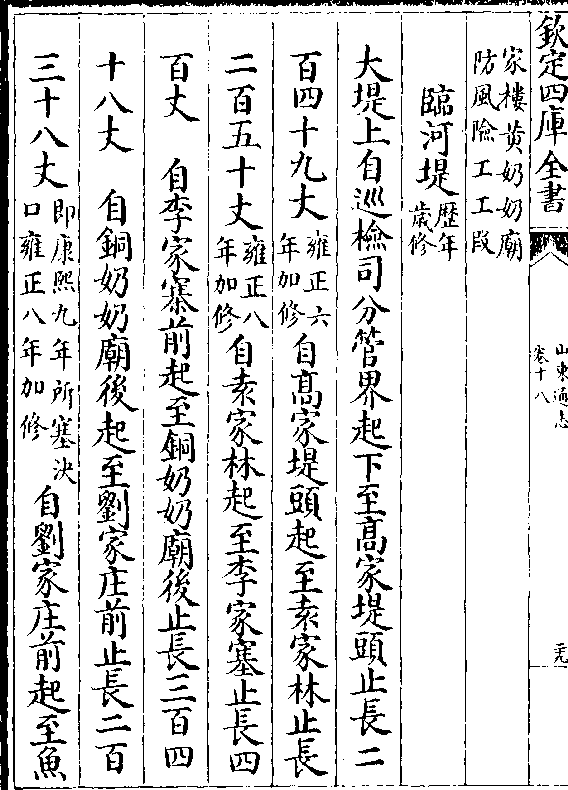 欽定四庫全書
山東通志
卷十八
家樓黄奶奶廟
防風險工工段
臨河堤歴年
歲修
大堤上自巡檢司分管界起下至高家堤頭止長二
百四十九丈雍正六
年加修自高家堤頭起至袁家林止長
二百五十丈雍正八
年加修自袁家林起至李家寨止長四
百丈　自李家寨前起至銅奶奶廟後止長三百四
十八丈　自銅奶奶廟後起至劉家庄前止長二百
三十八丈即康熙九年所塞决
口雍正八年加修自劉家庄前起至魚